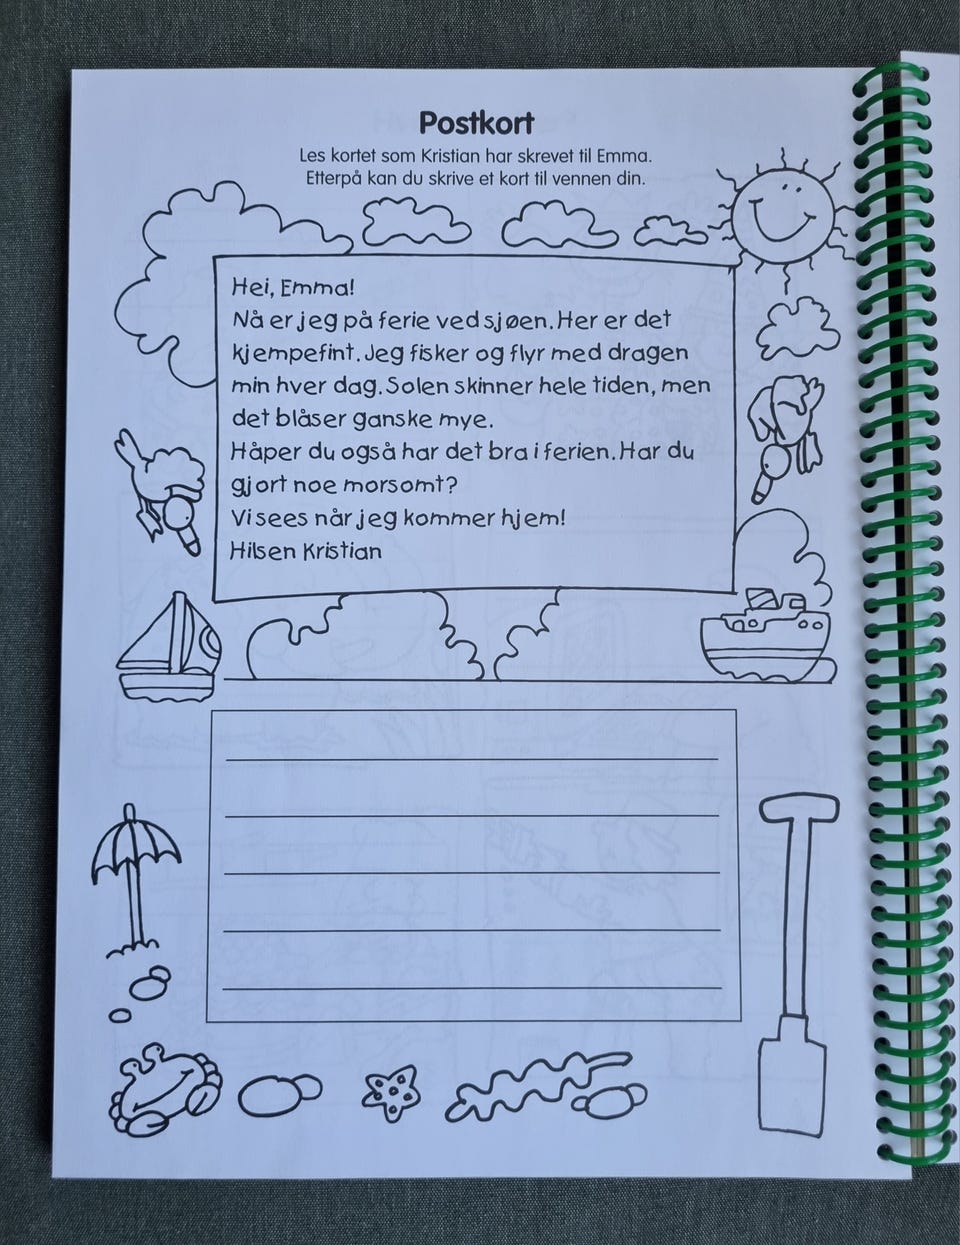 Postkort
Les kortet som Kristian har skrevet til Emma.
Etterpå kan du skrive et kort til vennen din.
Hei, Emma!
Nå er jeg på ferie ved sjøen. Her er det
kjempefint. Jeg fisker og flyr med dragen
min hver dag. Solen skinner hele tiden, men
det blåser ganske mye.
Håper du også har det bra i ferien. Har du
gjort noe morsomt?
Vi sees når jeg kommer hjem!
Hilsen Kristian